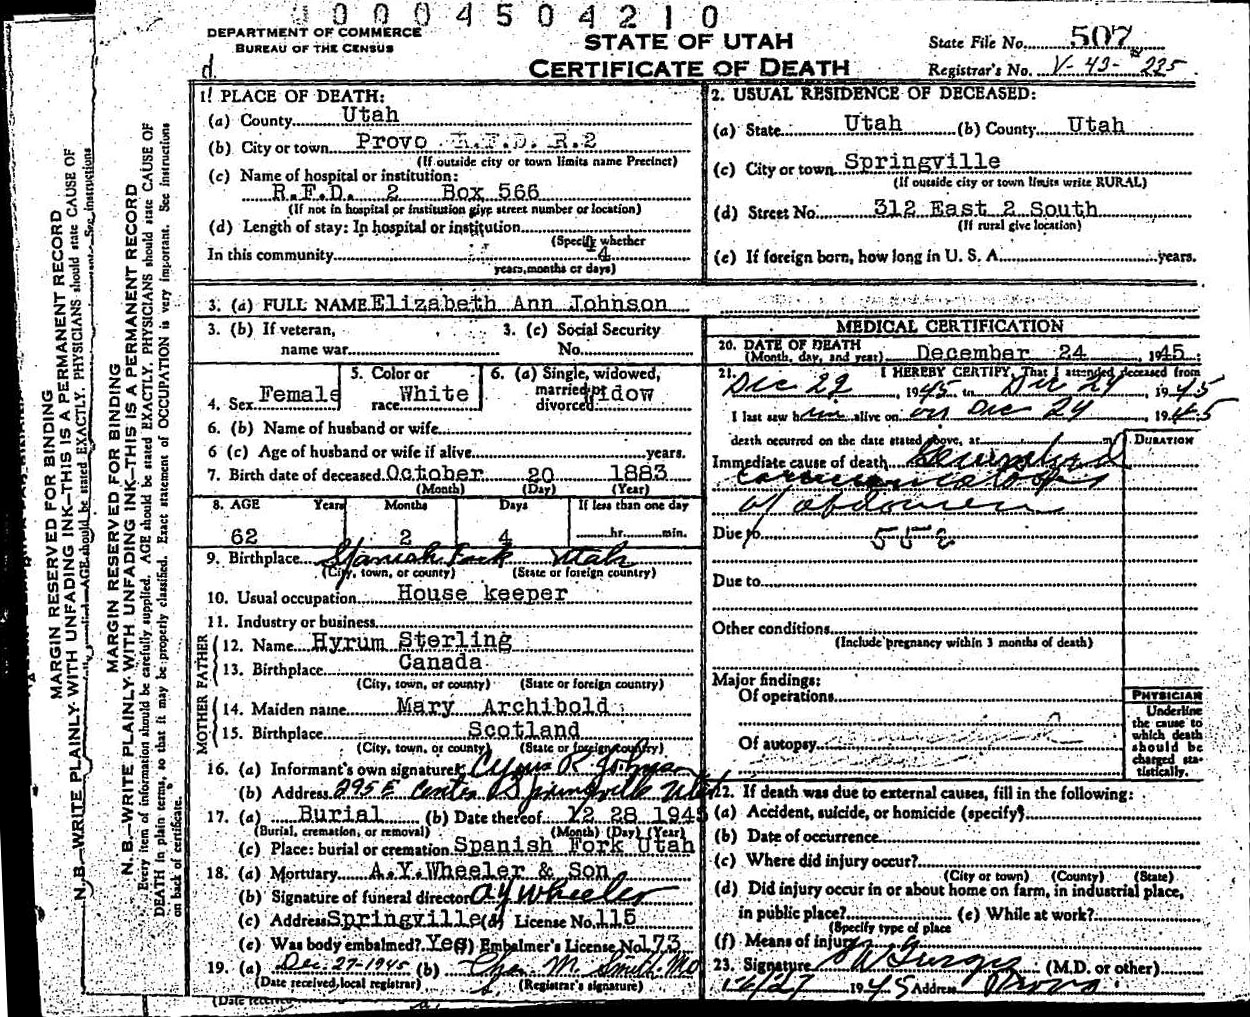 0004504210
DEPARTMENT OF COMMERCE
BUREAU OF THE CENSUS
STATE OF UTAH
CERTIFICATE OF DEATH
State File No. 507
Registrar's No. V-43- 225
d.
1. PLACE OF DEATH:
(a) County Utah
(b) City or town Provo R.F.D. R.2
(If outside city or town limits name Precinct)
(c) Name of hospital or institution:
R.F.D. 2 Box 566
(If not in hospital or institution give street number or location)
(d) Length of stay: In hospital or institution
(Specify whether
In this community 4
years, months or days)
2. USUAL RESIDENCE OF DECEASED:
(a) State Utah (b) County Utah
(c) City or town Springville
(If outside city or town limits write RURAL)
(d) Street No. 312 East 2 South
(If rural give location)
(e) If foreign born, how long in U. S. A. years.
3. (a) FULL NAME Elizabeth Ann Johnson
3. (b) If veteran,
name war
3. (c) Social Security
No.
4. Sex Female
5. Color or
race White
6. (a) Single, widowed,
married,
divorced Widow
6. (b) Name of husband or wife
6 (c) Age of husband or wife if alive years.
7. Birth date of deceased October 20 1883
(Month) (Day) (Year)
8. AGE Years Months Days If less than one day
62 2 4 hr. min.
9. Birthplace Spanish Fork Utah
(City, town, or county) (State or foreign country)
10. Usual occupation House keeper
11. Industry or business
FATHER
12. Name Hyrum Sterling
13. Birthplace Canada
(City, town, or county) (State or foreign country)
MOTHER
14. Maiden name Mary Archibold
15. Birthplace Scotland
(City, town, or county) (State or foreign country)
16. (a) Informant's own signature Cyrus R Johnson
(b) Address 295 E Center Springville Utah
17. (a) Burial (b) Date thereof 12 28 1945
(Burial, cremation, or removal) (Month) (Day) (Year)
(c) Place: burial or cremation Spanish Fork Utah
18. (a) Mortuary A.Y.Wheeler & Son
(b) Signature of funeral director A Y Wheeler
(c) Address Springville (d) License No. 115
(e) Was body embalmed? Yes (f) Embalmer's License No 173
19. (a) Dec-27-1945 (b) Chas. M. Smith. MD
(Date received local registrar) (Registrar's signature)
(Date received
MEDICAL CERTIFICATION
20. DATE OF DEATH
(Month, day, and year) December 24, 1945
21. I HEREBY CERTIFY, That I attended deceased from
Dec 22, 1945 to Dec 24 1945
I last saw h alive on on Dec 24 1945
death occurred on the date stated above, at m
DURATION
Immediate cause of death Generalized
carcinomatosis
of abdomen
Due to 552
Due to
Other conditions
(Include pregnancy within 3 months of death)
Major findings:
Of operations
Of autopsy
PHYSICIAN
Underline
the cause to
which death
should be
charged sta-
tistically.
22. If death was due to external causes, fill in the following:
(a) Accident, suicide, or homicide (specify)
(b) Date of occurrence
(c) Where did injury occur?
(City or town) (County) (State)
(d) Did injury occur in or about home on farm, in industrial place,
in public place? (e) While at work?
(Specify type of place
(f) Means of injury
23. Signature (M.D. or other)
12/27 1945 Address Provo
MARGIN RESERVED FOR BINDING
N. B.—WRITE PLAINLY WITH UNFADING INK—THIS IS A PERMANENT RECORD
AGE should be stated EXACTLY. PHYSICIANS should state CAUSE OF
See instructions
MARGIN RESERVED FOR BINDING
N. B.—WRITE PLAINLY WITH UNFADING INK—THIS IS A PERMANENT RECORD
Every item of information should be carefully supplied. AGE should be stated EXACTLY. PHYSICIANS should state CAUSE OF
DEATH in plain terms, so that it may be properly classified. Exact statement of OCCUPATION is very important. See instructions
on back of certificate.